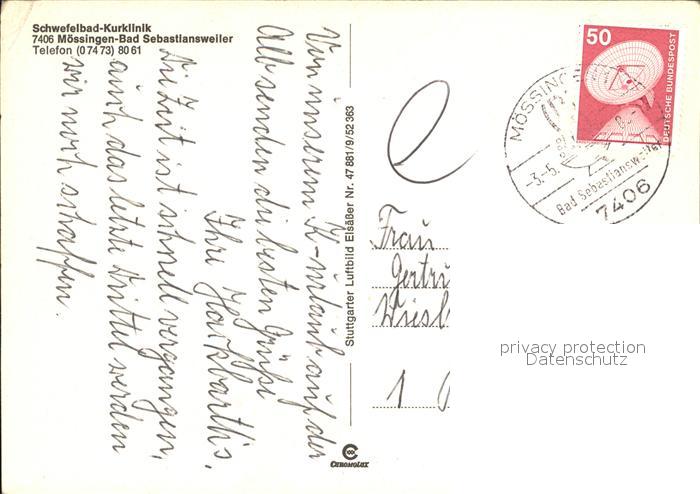 Schwefelbad-Kurklinik
7406 Mössingen-Bad Sebastiansweiler
Telefon (0 74 73) 80 61
Von unserem K-urlaub auf der
Alb senden die besten Grüße
Ihre Harkbarth's.
Die Zeit ist schnell vergangen,
auch das letzte Drittel werden
wir noch schaffen.
Stuttgarter Luftbild Elsäßer Nr. 47 881/9/52 363
CHROMOLUX
50
DEUTSCHE BUNDESPOST
MÖSSING
-3.-5.
Bad Sebastiansweiler
7406
Frau
Gertru
Wiesb
1
privacy protection
Datenschutz